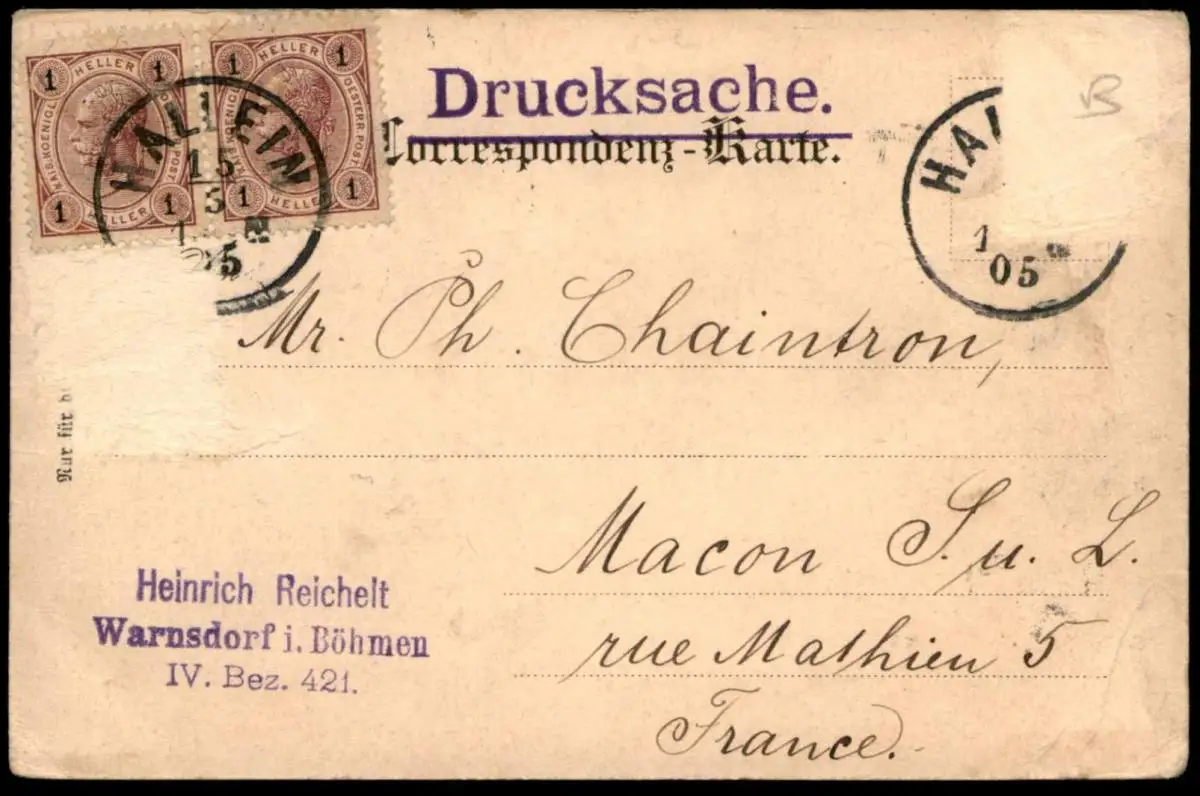 1 HELLER 1
KAIS. KOENIGL. OESTERR. POST.
1 HELLER 1
1 HELLER 1
KAIS. KOENIGL. OESTERR. POST.
1 HELLER 1
HALLEIN
3
05
Drucksache.
Correspondenz-Karte.
HA
1
05
B
Mr. Ph. Chaintron,
Nur für
Macon S. u. L.
rue Mathieu 5
France.
Heinrich Reichelt
Warnsdorf i. Böhmen
IV. Bez. 421.